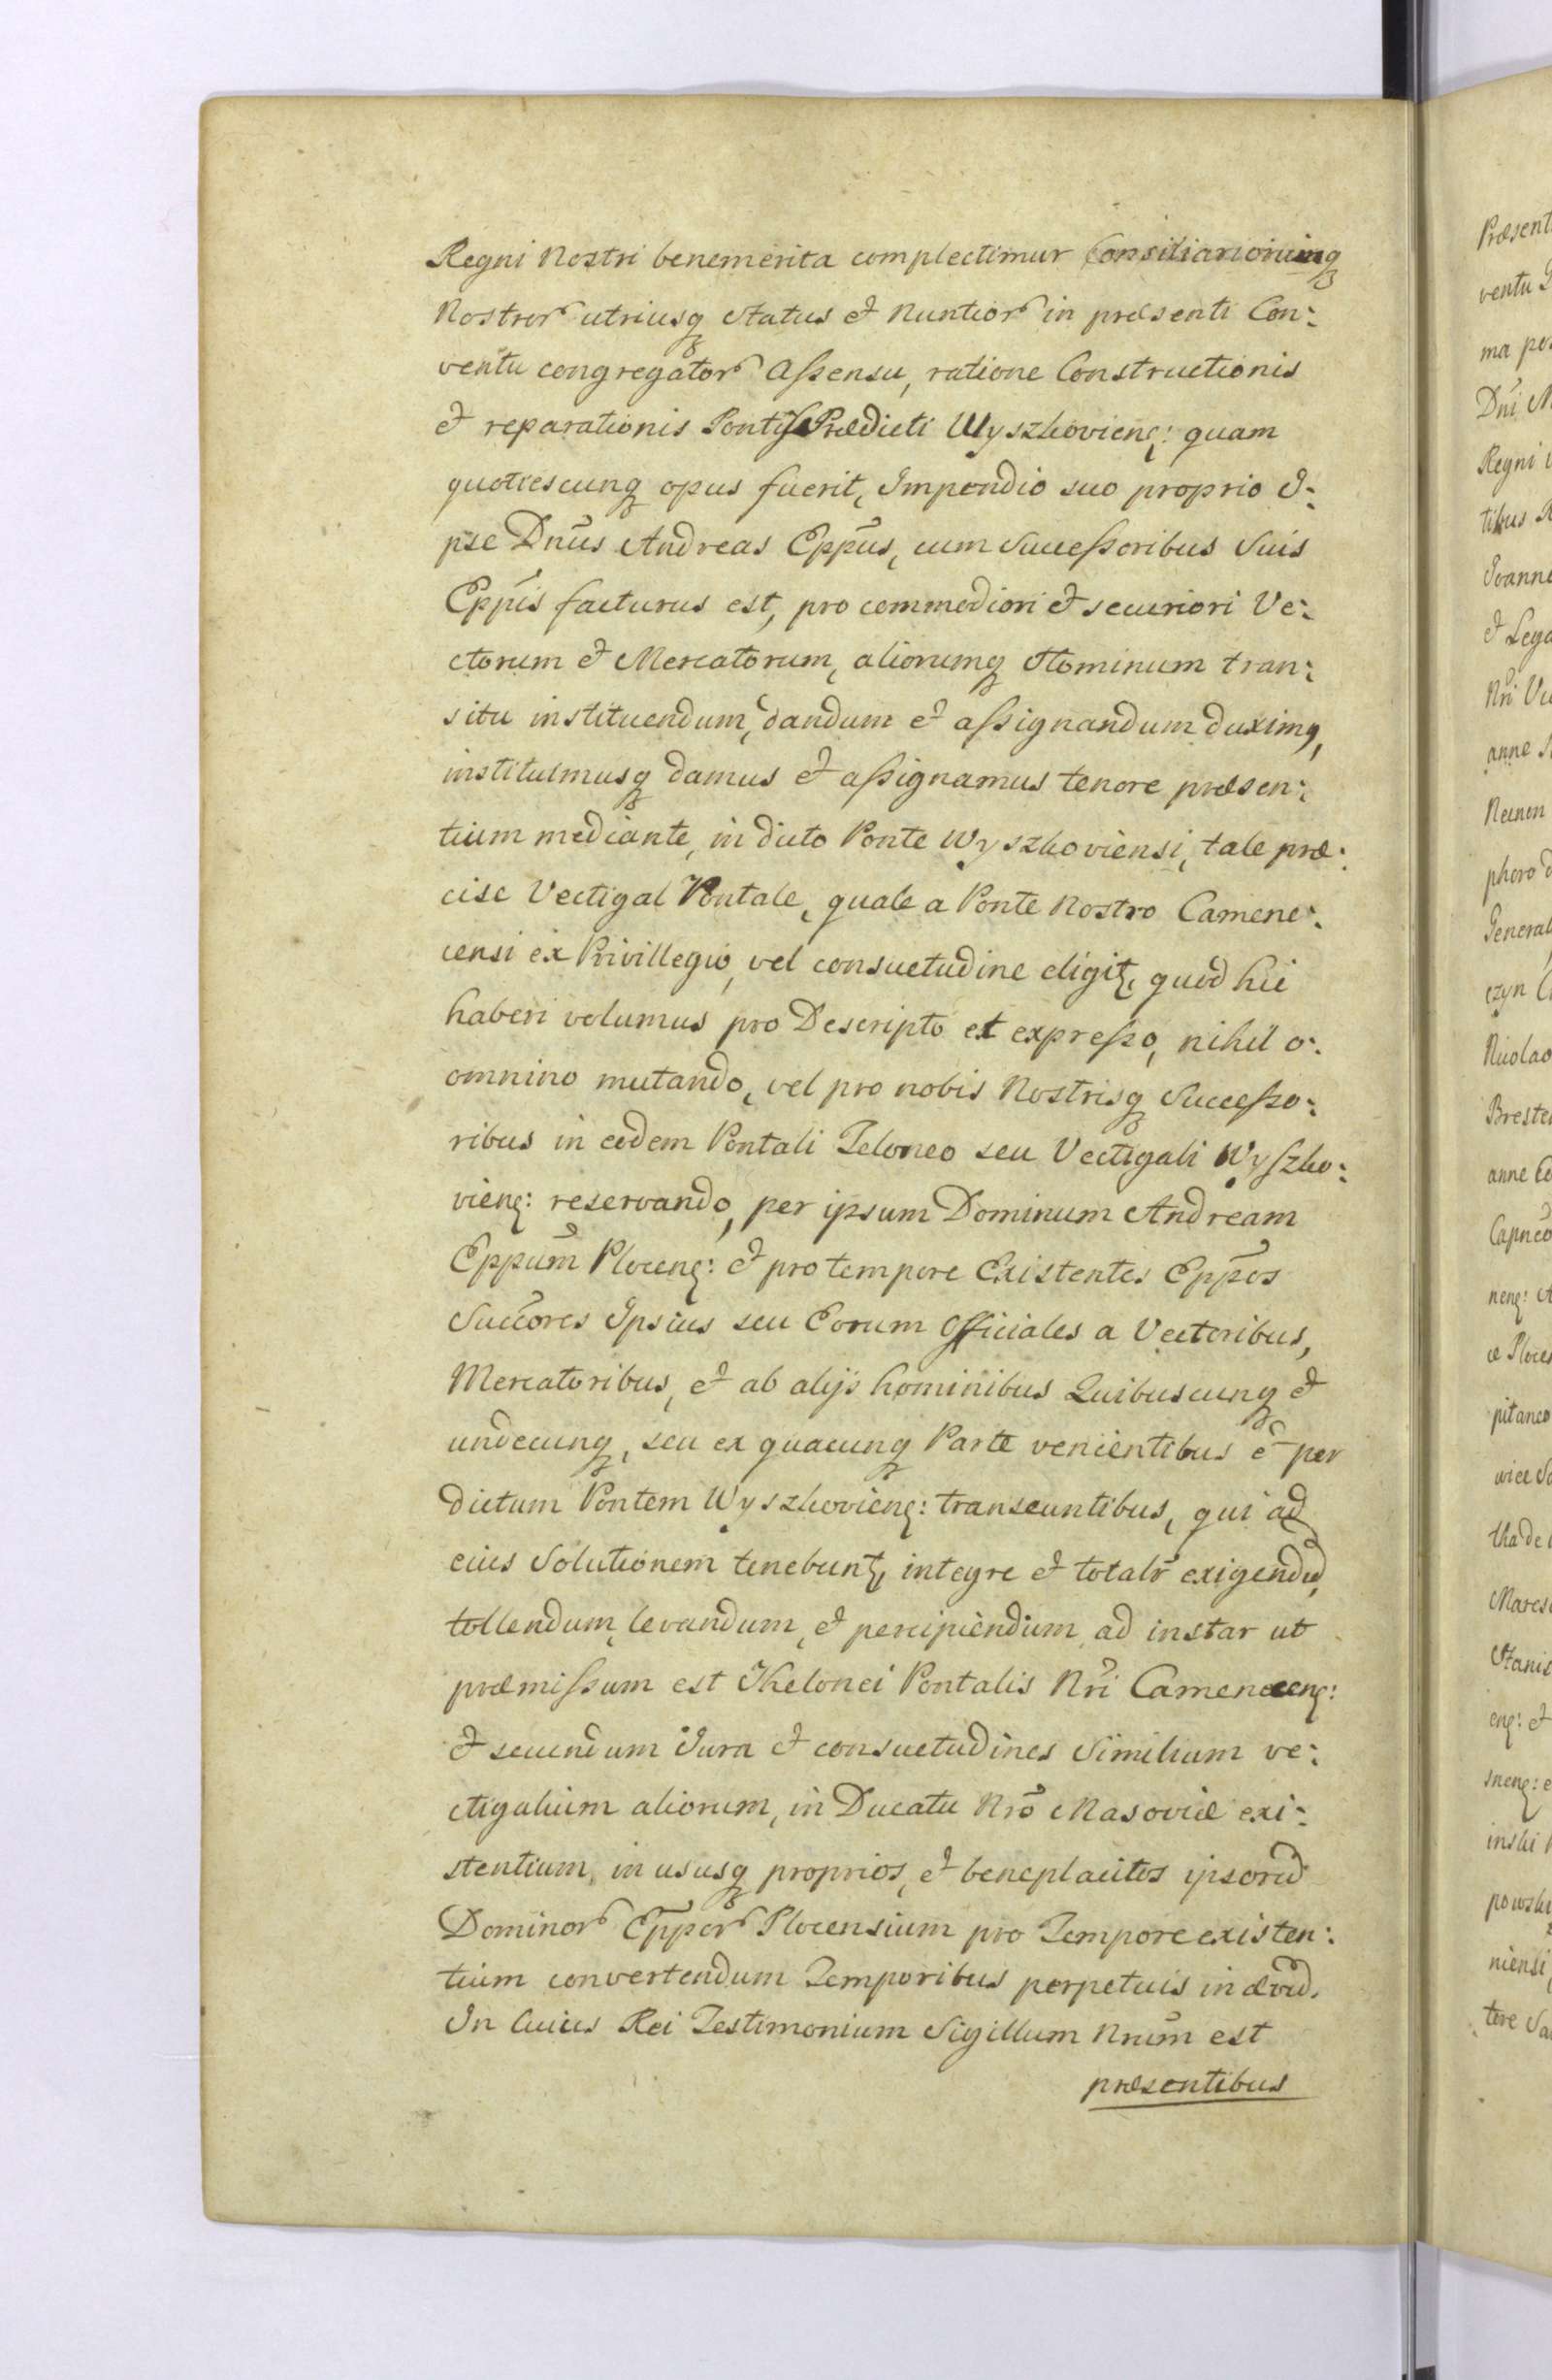 Regni Nostri benemerita complectimur Consiliariorumq
Nostror utriusq Status et Nuntior in præsenti Con:
ventu congregator Assensu, ratione Constructionis
et reparationis Pontis Prædicti Wyszkovieng: quam
quotiescunq opus fuerit, Impendio suo proprio I:
pse Dnus Andreas Eppus, cum Successoribus Suis
Eppis facturus est, pro commodiori et securiori Ve:
ctorum et Mercatorum, aliorumq Hominum tran:
situ instituendum, dandum et assignandum duximq,
instituimusq damus et assignamus tenore præsen:
tium mediante, in dicto Ponte Wyszkoviensi, tale præ:
cise Vectigal Pontale, quale a Ponte Nostro Camene:
censi ex Privillegio, vel consuetudine eligit, quod hic
haberi volumus pro Descripto et expresso, nihil o:
omnino mutando, vel pro nobis Nostrisq Successo:
ribus in eodem Pontali Teloneo seu Vectigali Wyszko:
vieng: reservando, per ipsum Dominum Andream
Eppum Ploceng: et pro tempore Existentes Eppos
Succores Ipsius seu Eorum Officiales a Vectoribus,
Mercatoribus, et ab alijs hominibus Quibuscunq et
undecunq, seu ex quacunq Parte venientibus e per
dictum Pontem Wyszkovieng: transeuntibus, qui ad
eius Solutionem tenebunt, integre et totalr exigendu,
tollendum, levandum, et percipiendum ad instar ut
præmissum est Thelonei Pontalis Nri Cameneceng:
et secundum Iura et consuetudines Similium ve:
ctigalium aliorum, in Ducatu Nro Masoviæ exi:
stentium, in ususq proprios, et beneplacitos ipsoru
Dominor Eppor Plocensium pro Tempore existen:
tium convertendum Temporibus perpetuis in ævu.
In Cuius Rei Testimonium Sigillum Nrum est
præsentibus